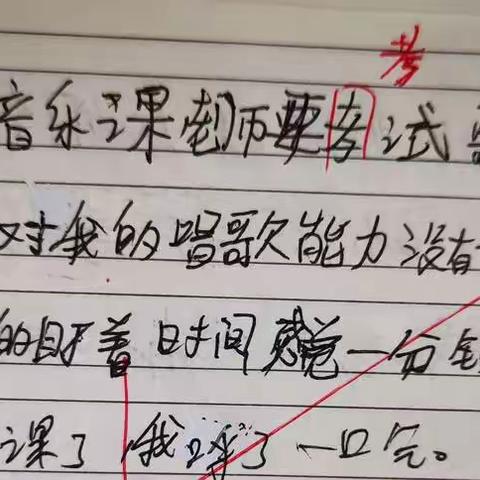 考
音乐课老师要考试
对我的唱歌能力没有
的盯着时间感觉一分
课了,我呼了一口气。